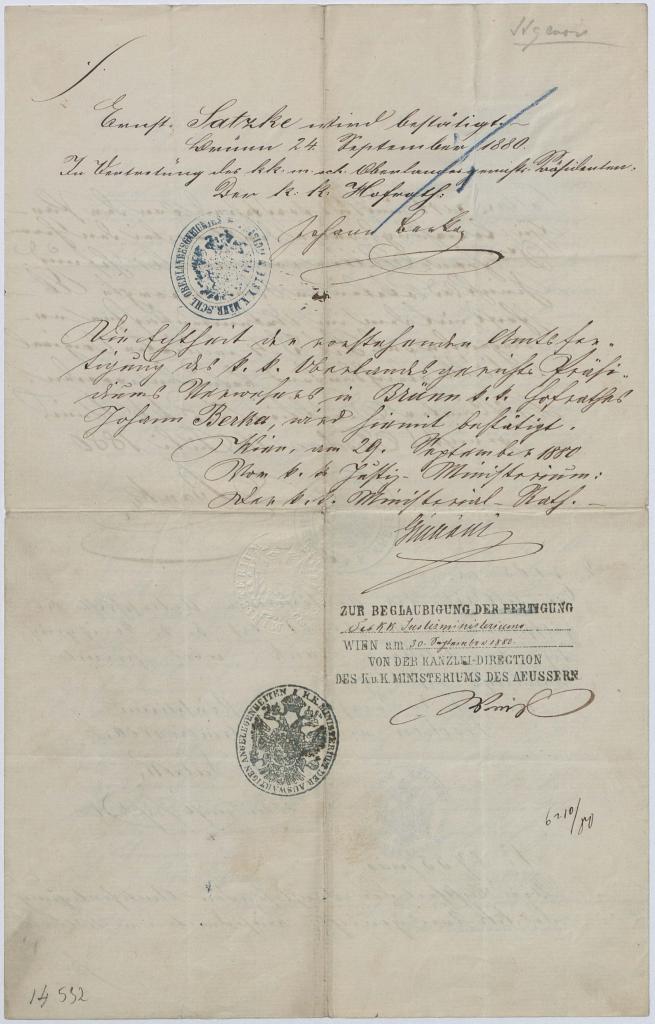 Ernst Satzke wird bestätigt.
Brünn 24. September 1880.
In Vertretung des k.k. m. sch. Oberlandesgerichts Präsidenten.
Der k: k: Hofrath:
Johann Berka
K. K. MÄHR. SCHL. OBERLANDESGERICHTES
Die Echtheit der vorstehenden Amtsfer-
tigung des k. k. Oberlandesgerichts Präsi-
diums Verwesers in Brünn k. k. Hofrathes
Johann Berka, wird hiemit bestätigt.
Wien, am 29. September 1880
Vom k. k. Justiz-Ministerium:
Der k. k. Ministerial-Rath.
ZUR BEGLAUBIGUNG DER FERTIGUNG
des K.K. Justizministeriums
WIEN am 30. September 1880.
VON DER KANZLEI-DIRECTION
DES K.u.K. MINISTERIUMS DES AEUSSERN
K. K. MINISTERIUM DER AUSWÄRTIGEN ANGELEGENHEITEN
14 532